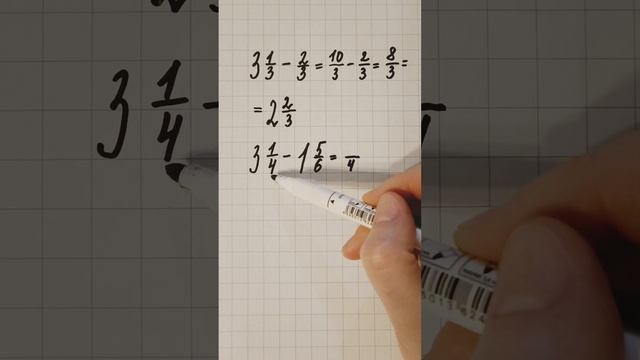 3 1/3 - 2/3 = 10/3 - 2/3 = 8/3 =
= 2 2/3
3 1/4 - 1 5/6 = /4